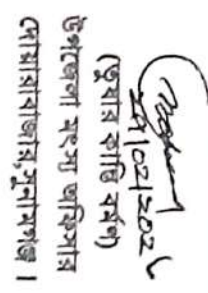 ২৭/০২/২০২৫
(তুষার কান্তি বর্মণ)
উপজেলা মৎস্য অফিসার
দোয়ারাবাজার, সুনামগঞ্জ।